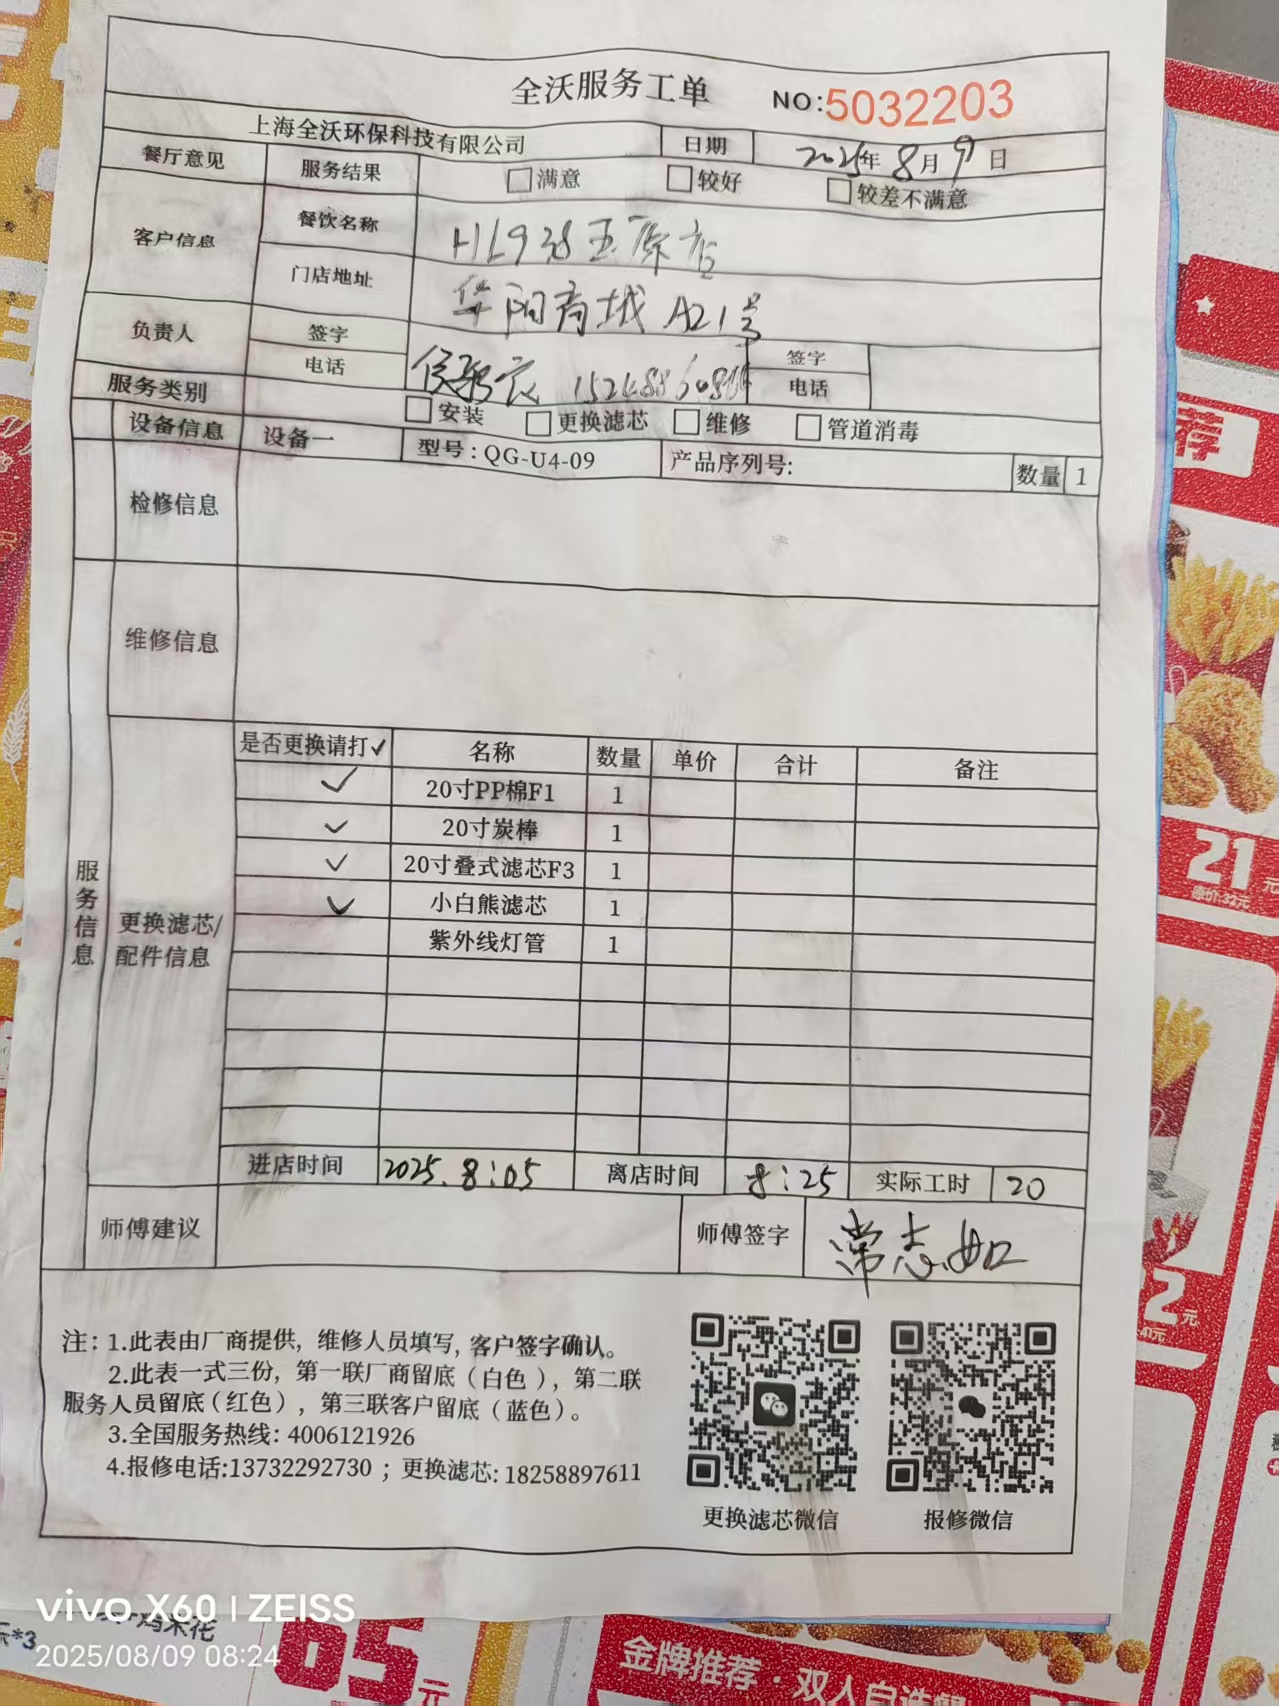 全沃服务工单
NO:5032203
上海全沃环保科技有限公司 日期 2025年8月9日
餐厅意见 服务结果 □满意 □较好 □较差不满意
客户信息 餐饮名称 HL938玉原店
门店地址 华阳商城A21号
负责人 签字 签字
电话 电话
服务类别 □安装 □更换滤芯 □维修 □管道消毒
设备信息 设备一 型号:QG-U4-09 产品序列号: 数量 1
检修信息
维修信息
服务信息
更换滤芯/配件信息
是否更换请打✓ 名称 数量 单价 合计 备注
✓ 20寸PP棉F1 1
✓ 20寸炭棒 1
✓ 20寸叠式滤芯F3 1
✓ 小白熊滤芯 1
紫外线灯管 1
进店时间 2025.8:05 离店时间 8:25 实际工时 20
师傅建议 师傅签字 常志如
注:1.此表由厂商提供,维修人员填写,客户签字确认。
2.此表一式三份,第一联厂商留底(白色),第二联
服务人员留底(红色),第三联客户留底(蓝色)。
3.全国服务热线:4006121926
4.报修电话:13732292730;更换滤芯:18258897611
更换滤芯微信 报修微信
vivo X60 | ZEISS
2025/08/09 08:24
荐
21元
原价:32元
2元
65元
金牌推荐·双人自选